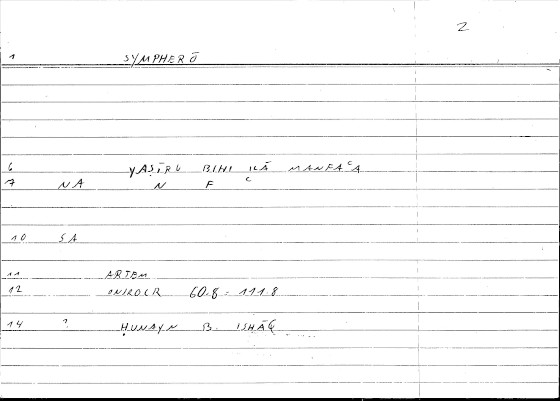 2
1 SYMPHERŌ
6 YAṢĪRU BIHI ILĀ MANFAʿA
7 NA N F ʿ
10 SA
11 ARTEM
12 ONIROCR 60.8 = 111.8
14 ? ḤUNAYN B. ISḤĀQ